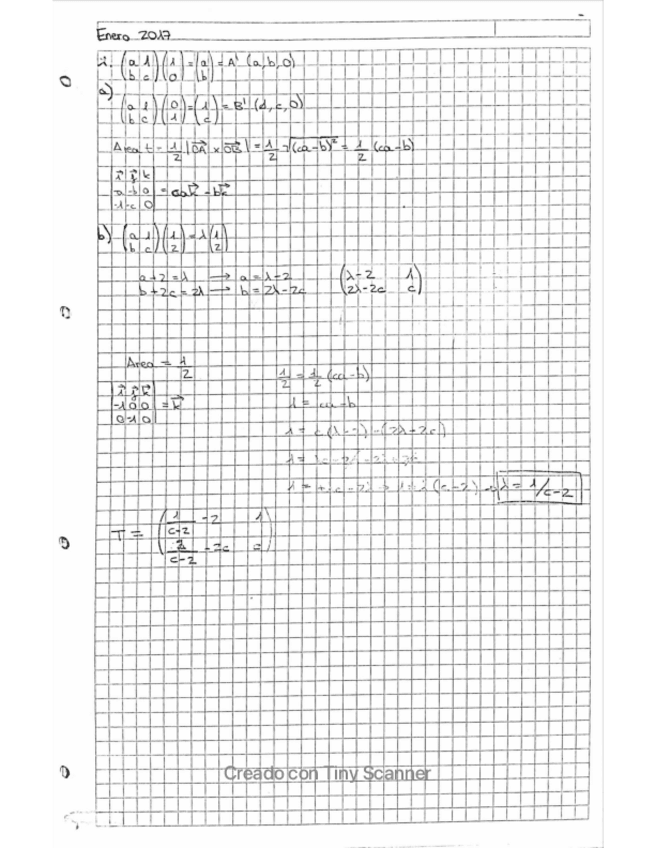 Enero 2017
1. (a 1 / b c)(1 / 0) = (a / b) = A' (a, b, 0)
a)
(a 1 / b c)(0 / 1) = (1 / c) = B' (1, c, 0)
Area t = 1/2 |OA × OB| = 1/2 √(ca-b)² = 1/2 (ca-b)
|i j k / a b 0 / 1 c 0| = cak - bk
b) (a 1 / b c)(1 / 2) = λ(1 / 2)
a+2 = λ → a = λ-2 (λ-2 1 / 2λ-2c c)
b+2c = 2λ → b = 2λ-2c
Area = 1/2
1/2 = 1/2 (ca-b)
|i j k / 1 0 0 / 0 1 0| = k
1 = ca-b
1 = c(λ-2)-(2λ-2c)
1 = λ(c-2) → λ = 1/c-2
T = (1/c-2 -2 1 / 2/c-2 -2c c)
Creado con Tiny Scanner